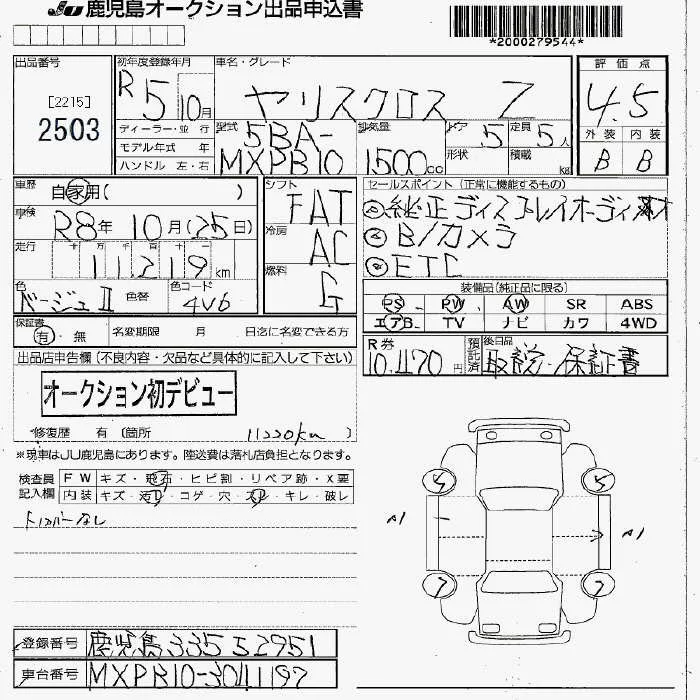 JU 鹿児島オークション出品申込書
*2000279544*
出品番号
[2215]
2503
初年度登録年月
R5 10月
ディーラー・並 行
モデル年式 年
ハンドル 左・右
車名・グレード
ヤリスクロス Z
型式 5BA-
MXPB10
排気量
1500cc
ドア 5
定員 5人
形状
積載 kg
評価点
4.5
外装 内装
B B
車歴 自家用( )
車検 R8年 10月(25日)
走行 十 万 千 百 十 一
11219km
色 色替 色コード
ベージュⅡ 4V6
シフト
FAT
冷房
AC
燃料
G
セールスポイント(正常に機能するもの)
純正ディスプレイオーディオ
B/カメラ
ETC
装備品(純正品に限る)
PS PW AW SR ABS
エアB TV ナビ カワ 4WD
保証書
有・無
名変期限 月 日迄に名変できる方
R券
10,470円
預託済
後日品
取説・保証書
出品店申告欄(不良内容・欠品など具体的に記入して下さい)
オークション初デビュー
修復歴 有 〔箇所 11220km 〕
※現車はJU鹿児島にあります。陸送費は落札店負担となります。
検査員
記入欄
FW キズ・飛石・ヒビ割・リペア跡・X要
内装 キズ・汚れ・コゲ・穴・スレ・キレ・破レ
トノカバーなし
5 5
A1 A1
7 7
登録番号 鹿児島335 す2951
車台番号 MXPB10-3041197